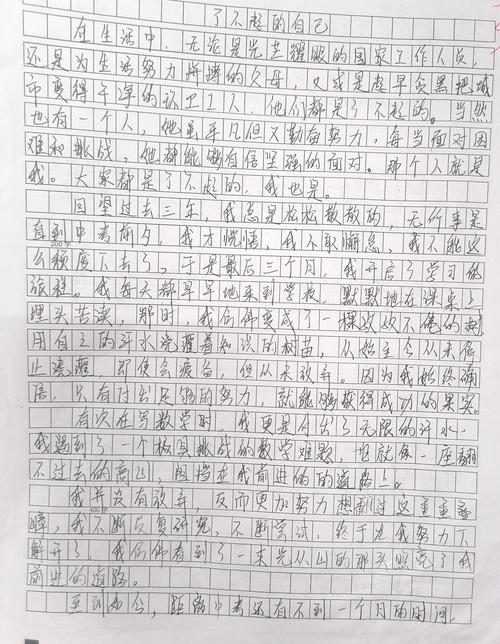 了不起的自己
在生活中，无论是光芒耀眼的国家工作人员，
还是为生活努力拼搏的父母，又或是起早贪黑把城
市变得干净的环卫工人，他们都是了不起的。当然
也有一个人，他虽平凡但不勤奋努力，每当面对困
难和挑战，他都能够有信坚强的面对。那个人就是
我。大家都是了不起的，我也是。
回望过去三年，我总是松松散散的，无所事是
直到中考前夕，我才恍悟，我不取懈怠，我不能这
200字
么颓废下去了。于是最后三个月，我开启了学习的
旅程。我每天都早早地来到学校，默默地在课桌上
埋头苦读，那时，我仿佛变成了一棵孜孜不倦的树
用自己的汗水浇灌着知识的树苗，从始至今从未停
止浇灌，即使会疲惫，但从未放弃。因为我始终确
信，只有付出足够的努力，就能够取得成功的果实。
有次在写数学时，我更是付出了无限的汗水.
我遇到了一个极具挑战的数学难题，也就像一座翻
不过去的高山，阻挡在我前进的的道路上。
我并没有放弃，反而更加努力想翻过这重重
400字
障，我不断反复研究，不断尝试，终于在我努力下
解开了，我仿佛看到了一束光从山的那头照亮了我
前进的道路。
至到如今，距离中考还有不到一个月的时间，